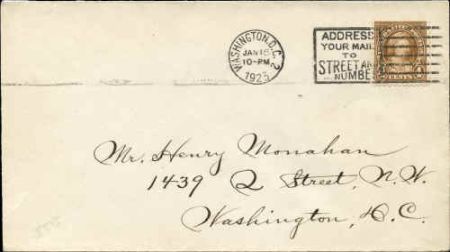 WASHINGTON, D.C. 2
JAN 15
10-PM
1925
ADDRESS
YOUR MAIL
TO
STREET AND
NUMBER
Mr. Henry Monahan
1439 Q Street, N.W.
Washington, D.C.